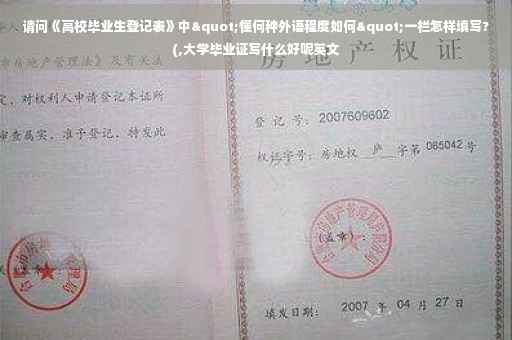 请问《高校毕业生登记表》中&quot;懂何种外语程度如何&quot;一栏怎样填写?
(,大学毕业证写什么好呢英文
房地产权证
市房地产管理法》及有关法
定，对权利人申请登记本证所
审查属实，准予登记，特发此
登记号：2007609602
权证字号：房地权 庐 字第 085042 号
(盖章)：
填发日期： 2007 年 04 月 27 日